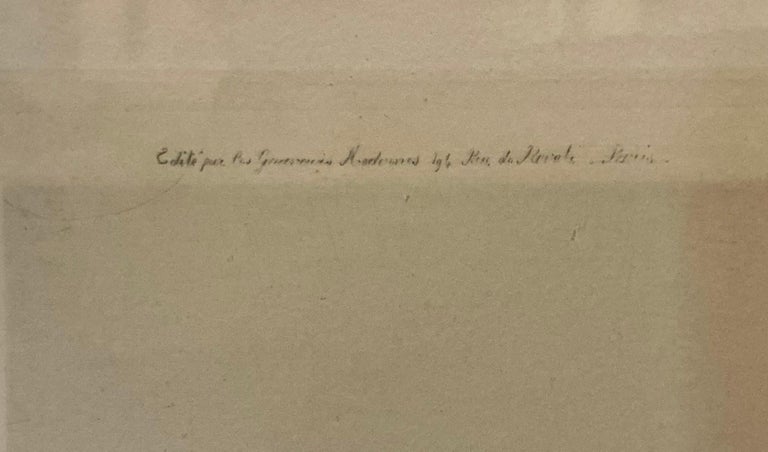 Edité par les Gravures Modernes 194 Rue de Rivoli - Paris.